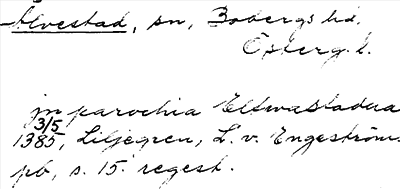 Älvestad, sn, Bobergs hd.
Österg. l.
jn parochia Eltwastadha
3/5
1385, Liljegren, L. v. Engeström.
pb, s. 15. regest.